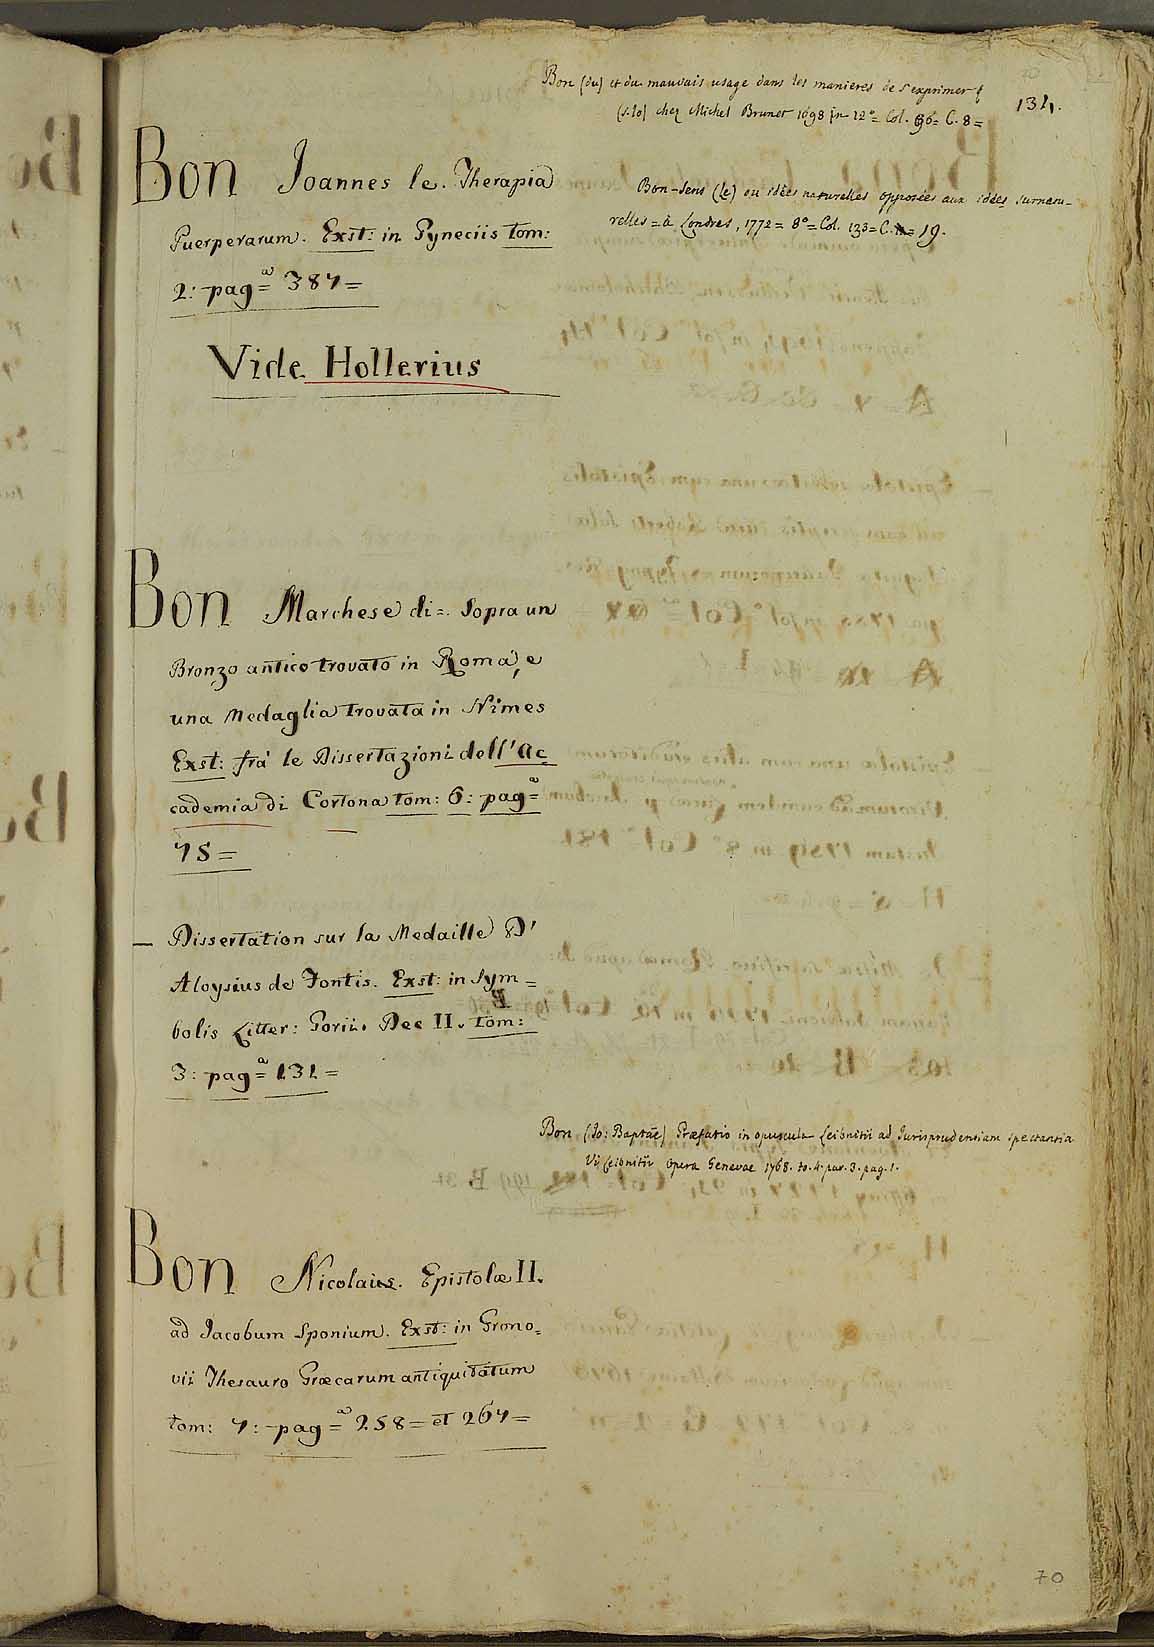 Bon (du) et du mauvais usage dans les manieres de s'exprimer
(s. lo) chez Michel Brunet 1698 in 12º= Col. 96= C. 8=
134.
Bon Joannes le. Therapia
Puerperarum. Exst: in Gyneciis tom:
2: pag=ª 387=
Vide Hollerius
Bon-Sens (le) ou idées naturelles opposées aux idées surnatu-
relles = à Londres, 1772 = 8º = Col. 133 = C. = 19.
Bon Marchese di=. Sopra un
Bronzo antico trovato in Roma, e
una Medaglia trovata in Nimes
Exst: frà le Dissertazioni dell'Ac
cademia di Cortona tom: 6: pag=ª
75=
— Dissertation sur la Medaille D'
Aloysius de Fontis. Exst: in Sym=
bolis Litter: Gorii. Dec II. tom:
3: pag=ª 131=
Bon (Jo: Baptae) Præfatio in opuscula Leibnitii ad Jurisprudentiam spectantia
Vi Leibnitii Opera Genevae 1768. to. 4. par. 3. pag. 1.
Bon Nicolaus. Epistolæ II.
ad Jacobum Sponium. Exst: in Grono=
vii Thesauro Græcarum antiquitatum
tom: 7: pag=ª 258= et 267=
70